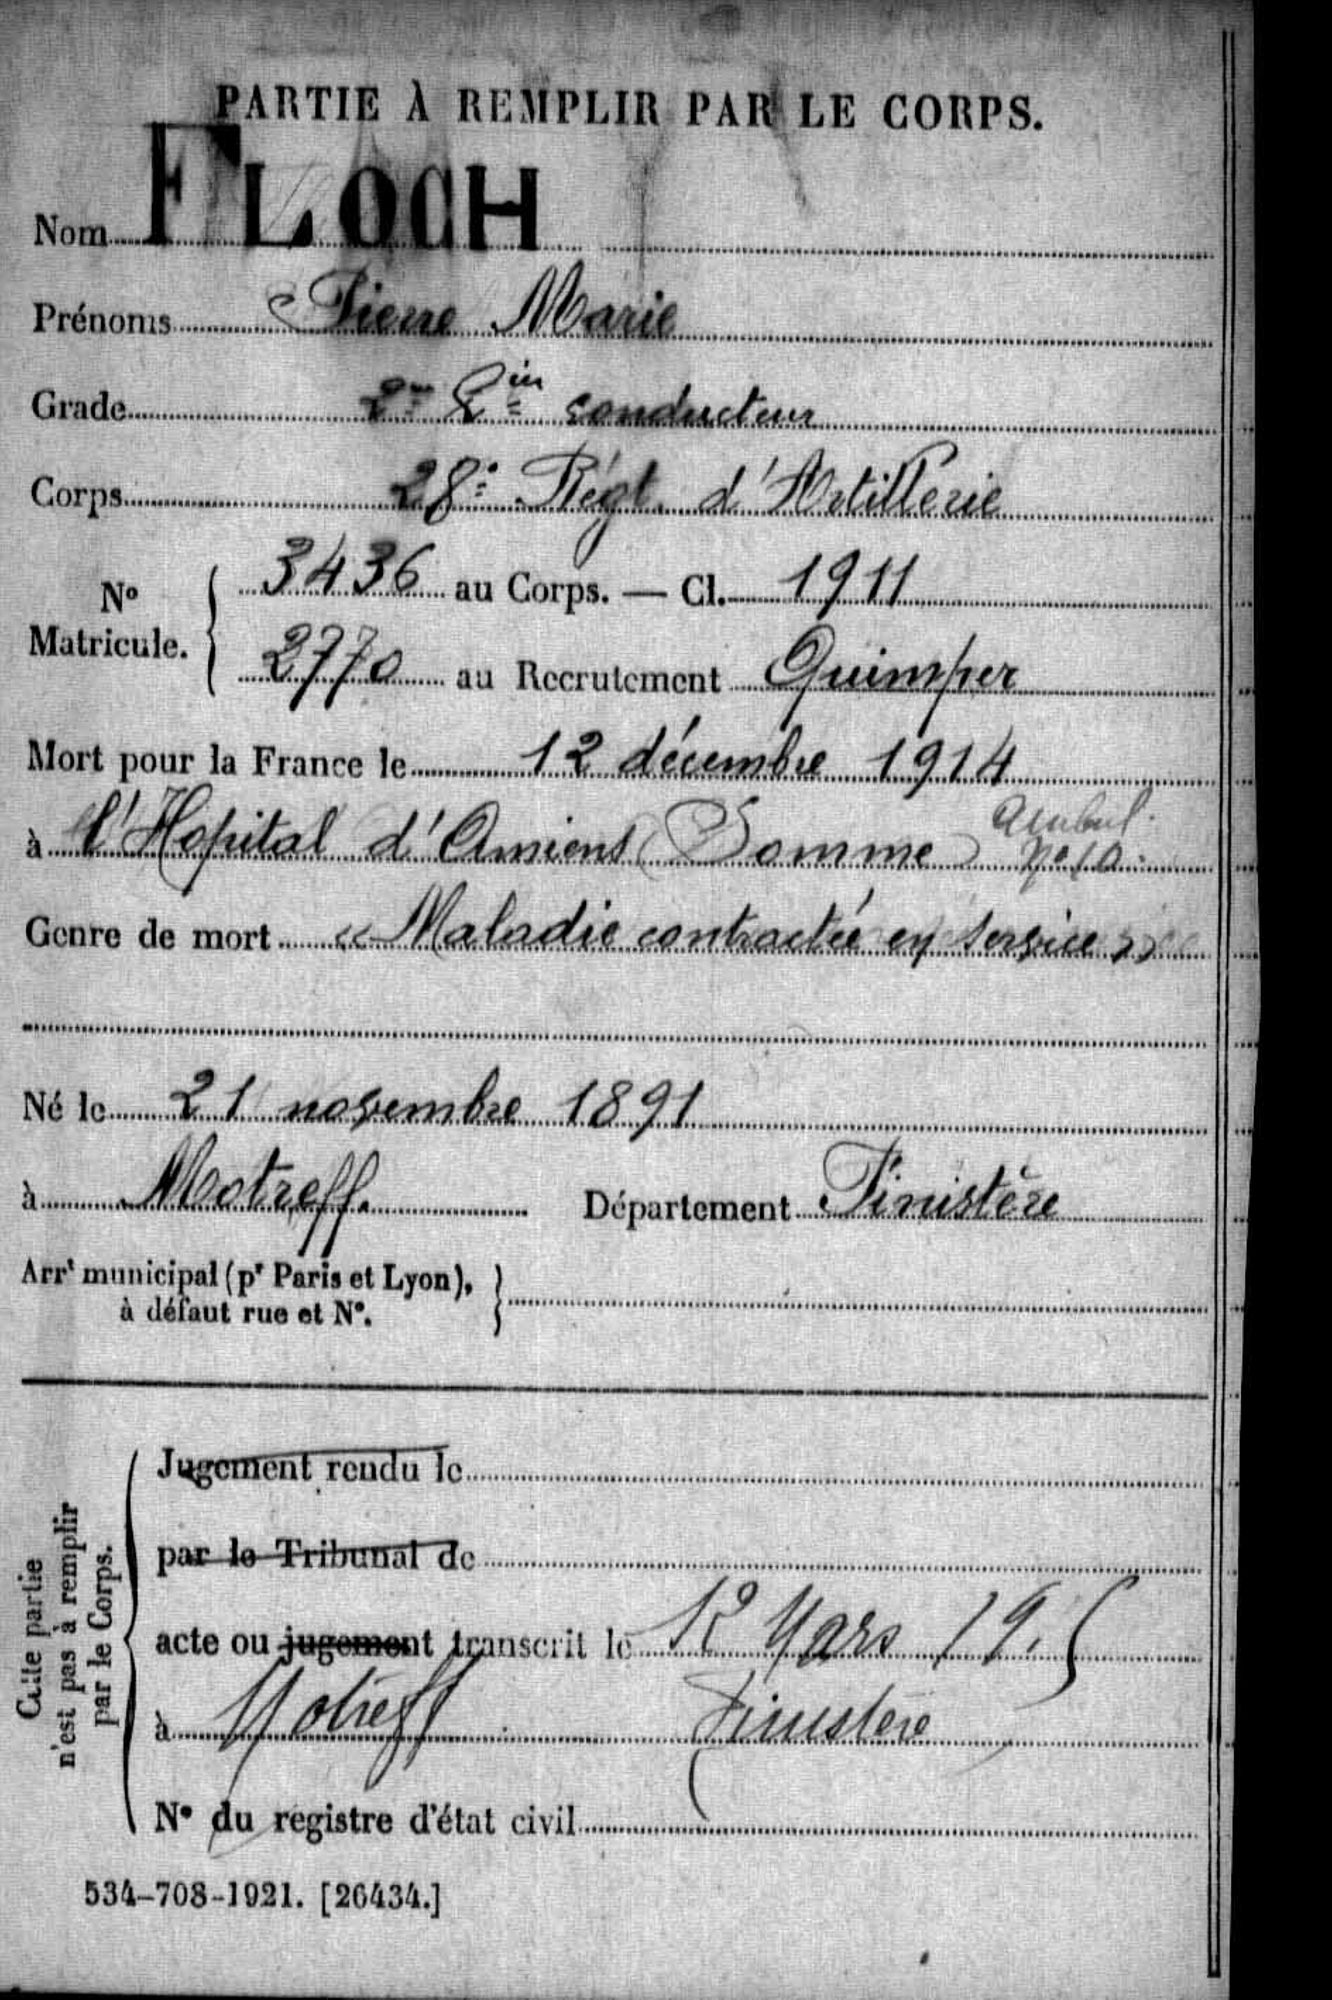 PARTIE À REMPLIR PAR LE CORPS.
Nom FLOCH
Prénoms Pierre Marie
Grade 2me conducteur
Corps 28e Régt. d'Artillerie
No Matricule. { 3436 au Corps. — Cl. 1911
2770 au Recrutement Quimper
Mort pour la France le 12 décembre 1914
à l'Hopital d'Amiens (Somme) Ambul.
Genre de mort « Maladie contractée en service »
Né le 21 novembre 1891
à Motreff. Département Finistère
Arrt municipal (pr Paris et Lyon), à défaut rue et No. }
Cette partie n'est pas à remplir par le Corps.
Jugement rendu le
par le Tribunal de
acte ou jugement transcrit le 12 Mars 1915
à Motreff Finistère
No du registre d'état civil
534-708-1921. [26434.]